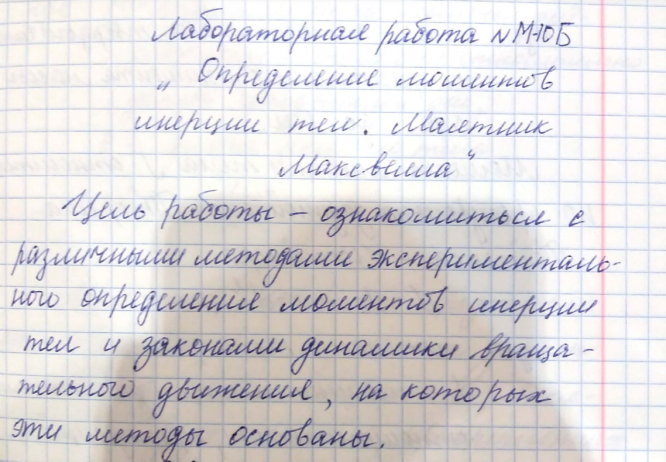 Лабораторная работа №М-10Б
„Определение моментов
инерции тел. Маятник
Максвелла“
Цель работы – ознакомиться с
различными методами эксперименталь-
ного определения моментов инерции
тел и законами динамики враща-
тельного движения, на которых
эти методы основаны.